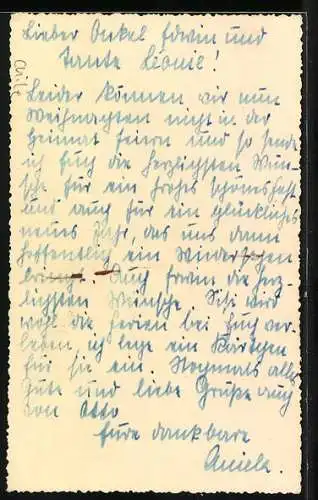 Lieber Onkel Edwin und
Tante Léonie!
Leider können wir nun
Weihnachten nicht in der
Heimat feiern und so sende
ich Euch die herzlichsten Wün-
sche für ein frohes schönes Fest
und auch für ein glückliches
neues Jahr, das uns dann
hoffentlich ein Wiedersehen
bringt. Auch Irawn die herz-
lichsten Wünsche. Sisi wird
wohl die Ferien bei Euch ver-
leben, ich lege ein Kärtchen
für sie ein. Nochmals alles
Gute und liebe Grüße auch
von Otto
Eure dankbare
Aniela.